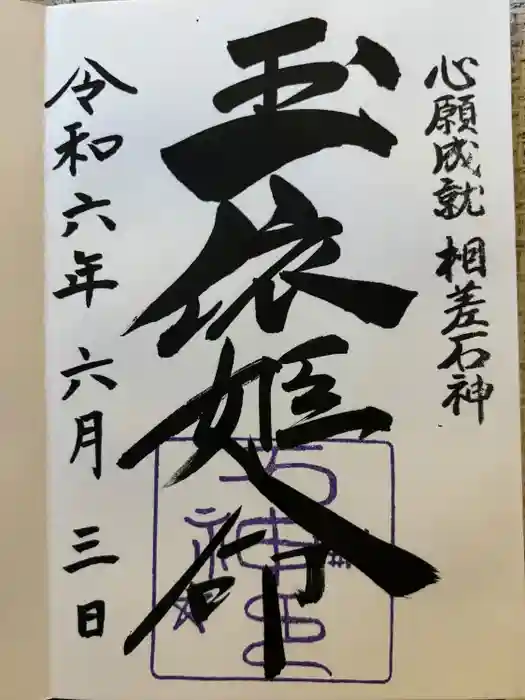 心願成就 相差石神
玉依姫命
令和六年 六月 三日